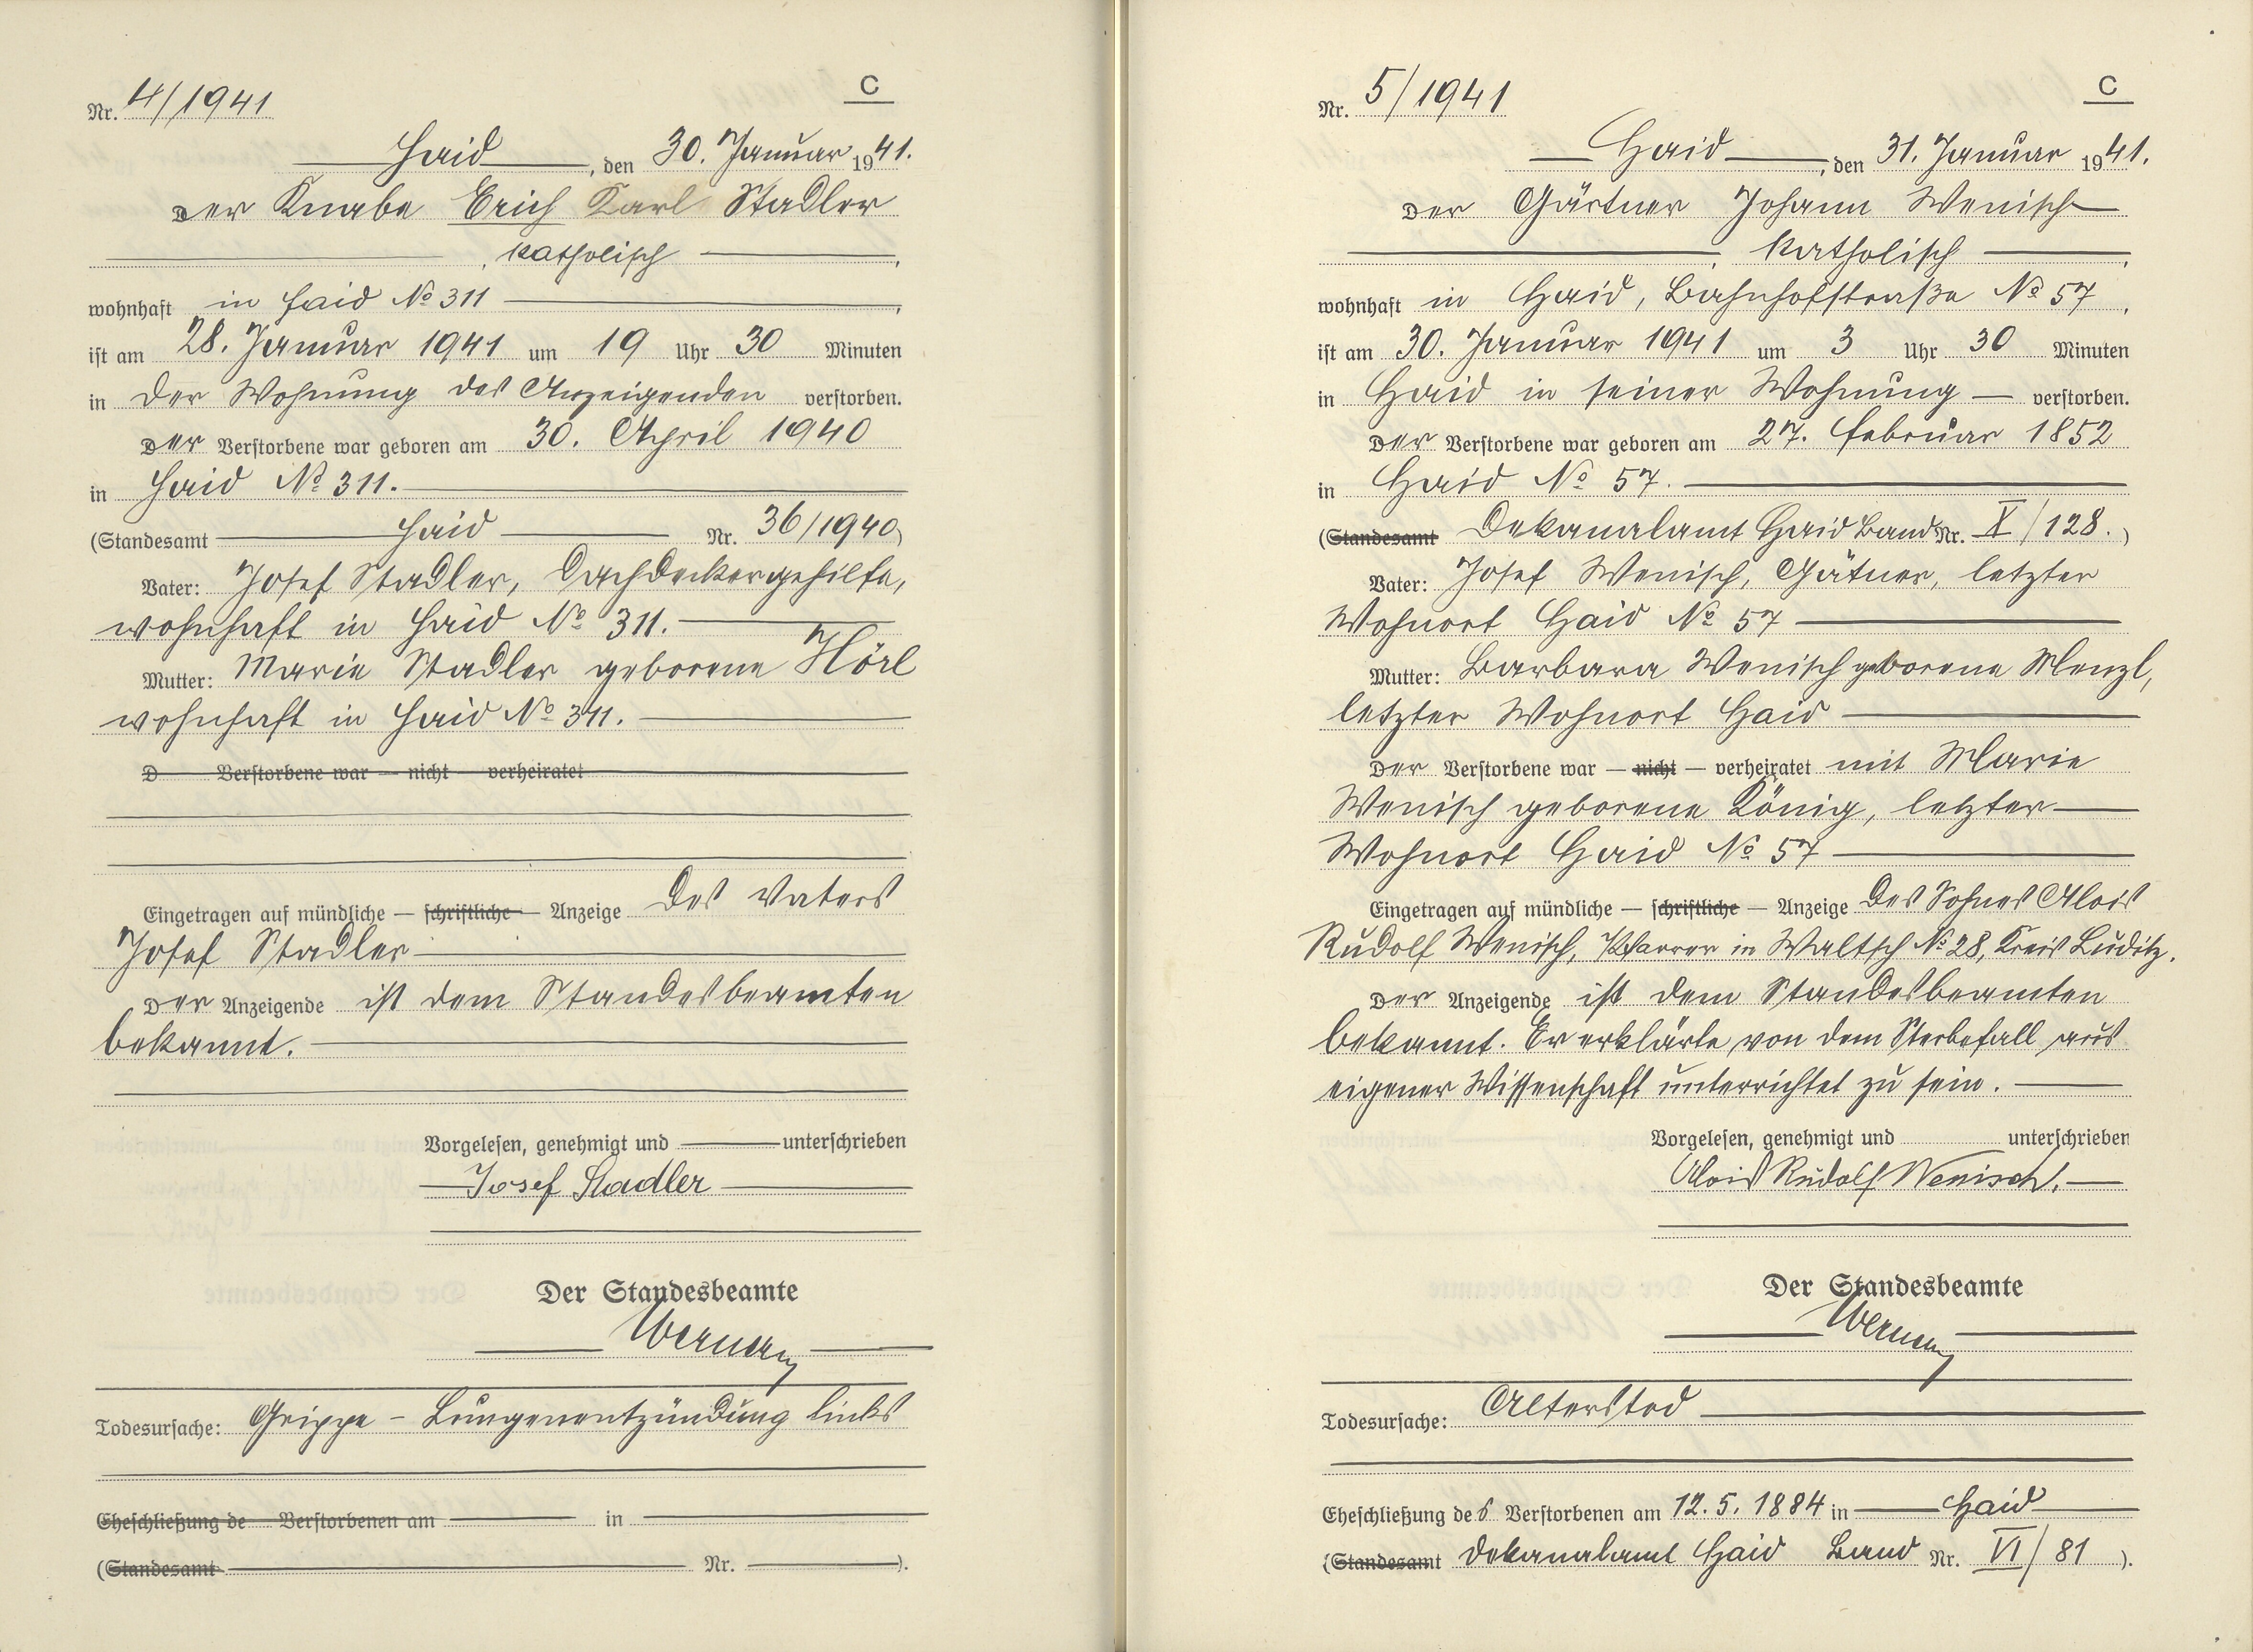 C
Nr. 4/1941
Haid, den 30. Januar 1941.
Der Knabe Erich Karl Stadler
, katholisch ,
wohnhaft in Haid No 311 ,
ist am 28. Januar 1941 um 19 Uhr 30 Minuten
in der Wohnung des Anzeigenden verstorben.
Der Verstorbene war geboren am 30. April 1940
in Haid No 311.
(Standesamt Haid Nr. 36/1940)
Vater: Josef Stadler, Dachdeckergehilfe,
wohnhaft in Haid No 311.
Mutter: Marie Stadler geborene Hörl
wohnhaft in Haid No 311.
D Verstorbene war — nicht — verheiratet
Eingetragen auf mündliche — schriftliche — Anzeige des Vaters
Josef Stadler
Der Anzeigende ist dem Standesbeamten
bekannt.
Vorgelesen, genehmigt und unterschrieben
Josef Stadler
Der Standesbeamte
Todesursache: Grippe - Lungenentzündung links
Eheschließung de Verstorbenen am in
(Standesamt Nr. ).
C
Nr. 5/1941
Haid, den 31. Januar 1941.
Der Gärtner Johann Wenisch
, katholisch ,
wohnhaft in Haid, Bahnhofstraße No 57 ,
ist am 30. Januar 1941 um 3 Uhr 30 Minuten
in Haid in seiner Wohnung — verstorben.
Der Verstorbene war geboren am 27. Februar 1852
in Haid No 57.
(Standesamt Dekanalamt Haid Band Nr. X/128.)
Vater: Josef Wenisch, Gätner, letzter
Wohnort Haid No 57
Mutter: Barbara Wenisch geborene Menzl,
letzter Wohnort Haid
Der Verstorbene war — nicht — verheiratet mit Marie
Wenisch geborene König, letzter
Wohnort Haid No 57
Eingetragen auf mündliche — schriftliche — Anzeige des Sohnes Alois
Rudolf Wenisch, Pfarrer in Waltsch No 28, Kreis Luditz.
Der Anzeigende ist dem Standesbeamten
bekannt. Er erklärte, von dem Sterbefall aus
eigener Wissenschaft unterrichtet zu sein.
Vorgelesen, genehmigt und unterschrieben
Alois Rudolf Wenisch.
Der Standesbeamte
Todesursache: Alterstod
Eheschließung des Verstorbenen am 12.5.1884 in Haid
(Standesamt Dekanalamt Haid Band Nr. VI/81 ).